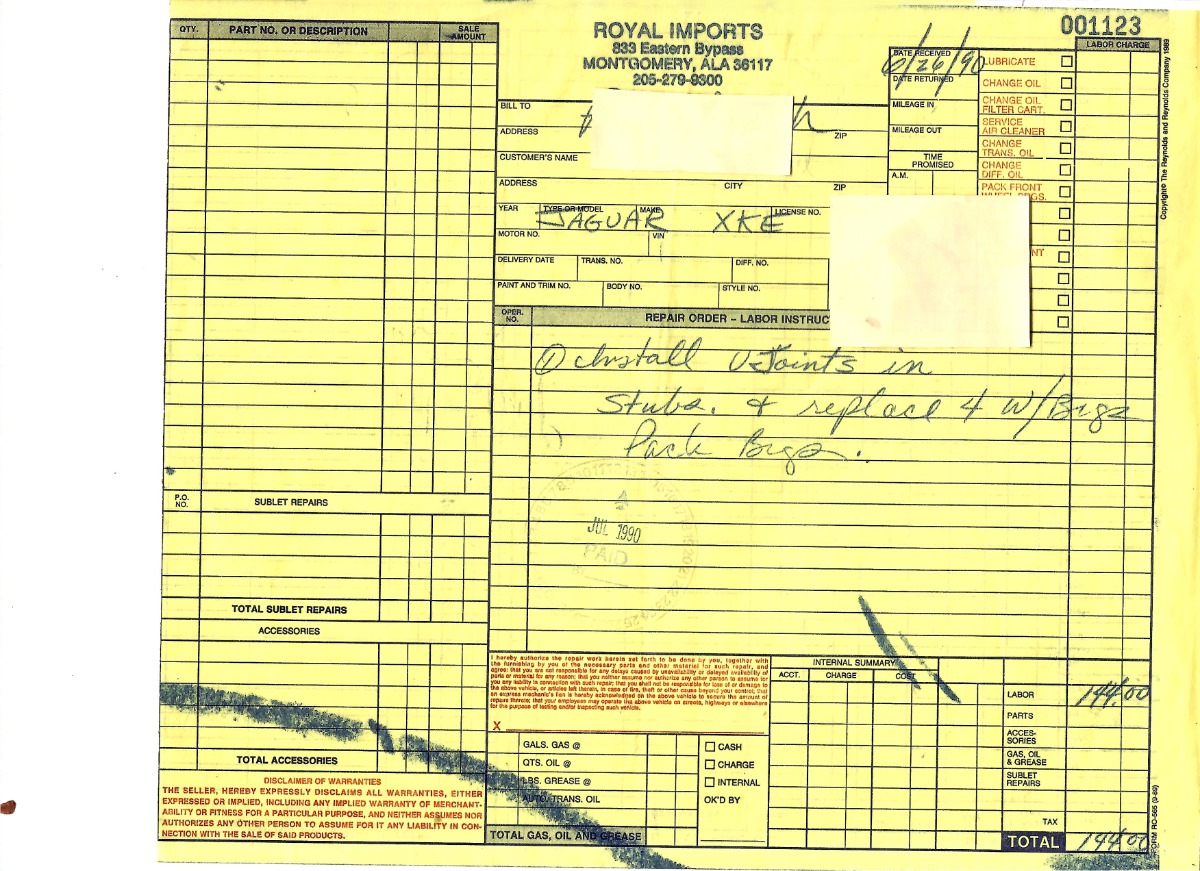 001123
ROYAL IMPORTS
833 Eastern Bypass
MONTGOMERY, ALA 36117
205-279-9300
QTY. PART NO. OR DESCRIPTION SALE AMOUNT
LABOR CHARGE
DATE RECEIVED 6/26/90
DATE RETURNED
MILEAGE IN
MILEAGE OUT
TIME PROMISED
A.M.
LUBRICATE
CHANGE OIL
CHANGE OIL FILTER CART.
SERVICE AIR CLEANER
CHANGE TRANS. OIL
CHANGE DIFF. OIL
PACK FRONT WHEEL BRGS.
NT
Copyright© The Reynolds and Reynolds Company 1989
BILL TO
ADDRESS ZIP
CUSTOMER'S NAME
ADDRESS CITY ZIP
YEAR TYPE OR MODEL MAKE LICENSE NO.
JAGUAR XKE
MOTOR NO. VIN
DELIVERY DATE TRANS. NO. DIFF. NO.
PAINT AND TRIM NO. BODY NO. STYLE NO.
OPER. NO. REPAIR ORDER – LABOR INSTRUC
① Install U-Joints in
Stubs. & replace 4 W/Brgs
Pack Brgs.
JUL 1990
PAID
P.O. NO. SUBLET REPAIRS
TOTAL SUBLET REPAIRS
ACCESSORIES
TOTAL ACCESSORIES
DISCLAIMER OF WARRANTIES
THE SELLER, HEREBY EXPRESSLY DISCLAIMS ALL WARRANTIES, EITHER
EXPRESSED OR IMPLIED, INCLUDING ANY IMPLIED WARRANTY OF MERCHANT-
ABILITY OR FITNESS FOR A PARTICULAR PURPOSE, AND NEITHER ASSUMES NOR
AUTHORIZES ANY OTHER PERSON TO ASSUME FOR IT ANY LIABILITY IN CON-
NECTION WITH THE SALE OF SAID PRODUCTS.
I hereby authorize the repair work herein set forth to be done by you, together with
the furnishing by you of the necessary parts and other material for such repair, and
agree: that you are not responsible for any delays caused by unavailability or delayed availability of
parts or material for any reason; that you neither assume nor authorize any other person to assume for
you any liability in connection with such repair; that you shall not be responsible for loss of or damage to
the above vehicle, or articles left therein, in case of fire, theft or other cause beyond your control; that
an express mechanic's lien is hereby acknowledged on the above vehicle to secure the amount of
repairs thereto; that your employees may operate the above vehicle on streets, highways or elsewhere
for the purpose of testing and/or inspecting such vehicle.
X
GALS. GAS @
QTS. OIL @
LBS. GREASE @
AUTO. TRANS. OIL
TOTAL GAS, OIL AND GREASE
CASH
CHARGE
INTERNAL
OK'D BY
INTERNAL SUMMARY
ACCT. CHARGE COST
LABOR 144.00
PARTS
ACCES-SORIES
GAS, OIL & GREASE
SUBLET REPAIRS
TAX
TOTAL 144.00
FORM RO-585 (9-89)